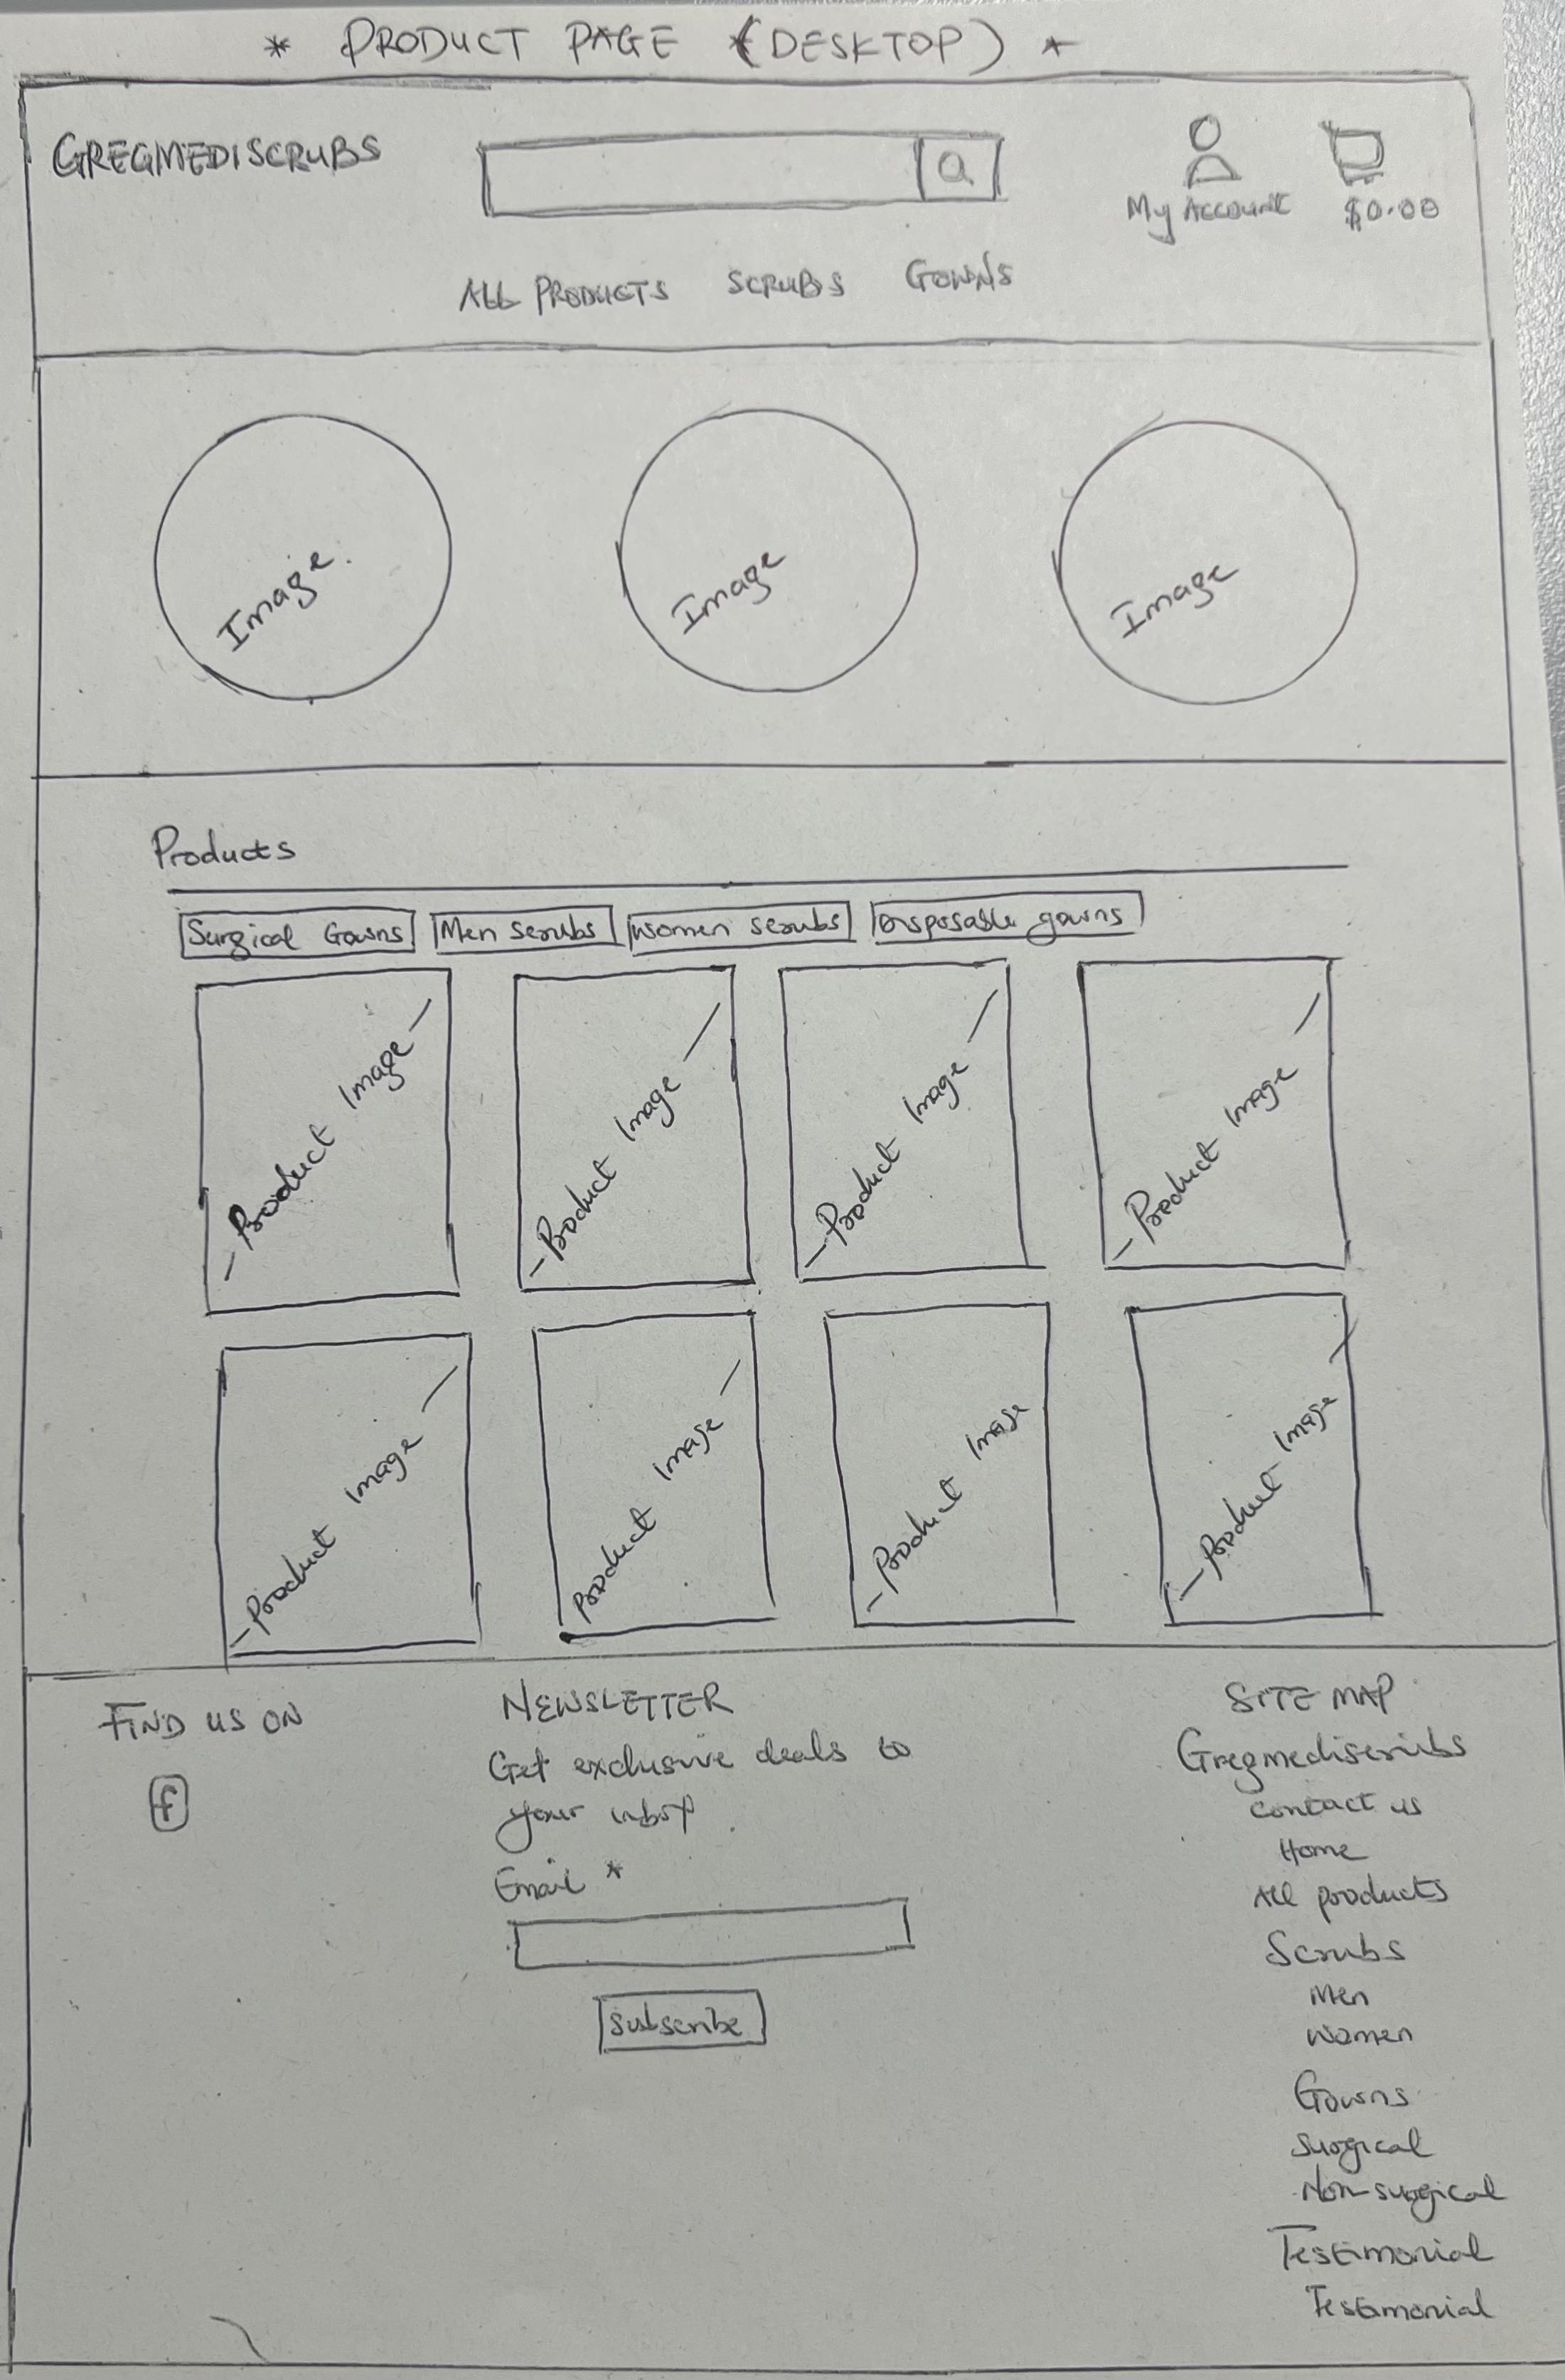 * PRODUCT PAGE (DESKTOP) *
GREGMEDISCRUBS
My Account $0.00
ALL PRODUCTS SCRUBS GOWNS
Image. Image Image
Products
Surgical Gowns Men scrubs Women scrubs Disposable gowns
- Product Image - - Product Image - - Product Image - - Product Image -
- Product Image - Product Image - - Product Image - Product Image -
FIND US ON
f
NEWSLETTER
Get exclusive deals to
your inbox.
Email *
Subscribe
SITE MAP
Gregmediscrubs
contact us
Home
All products
Scrubs
Men
Women
Gowns
Surgical
Non-surgical
Testimonial
Testimonial